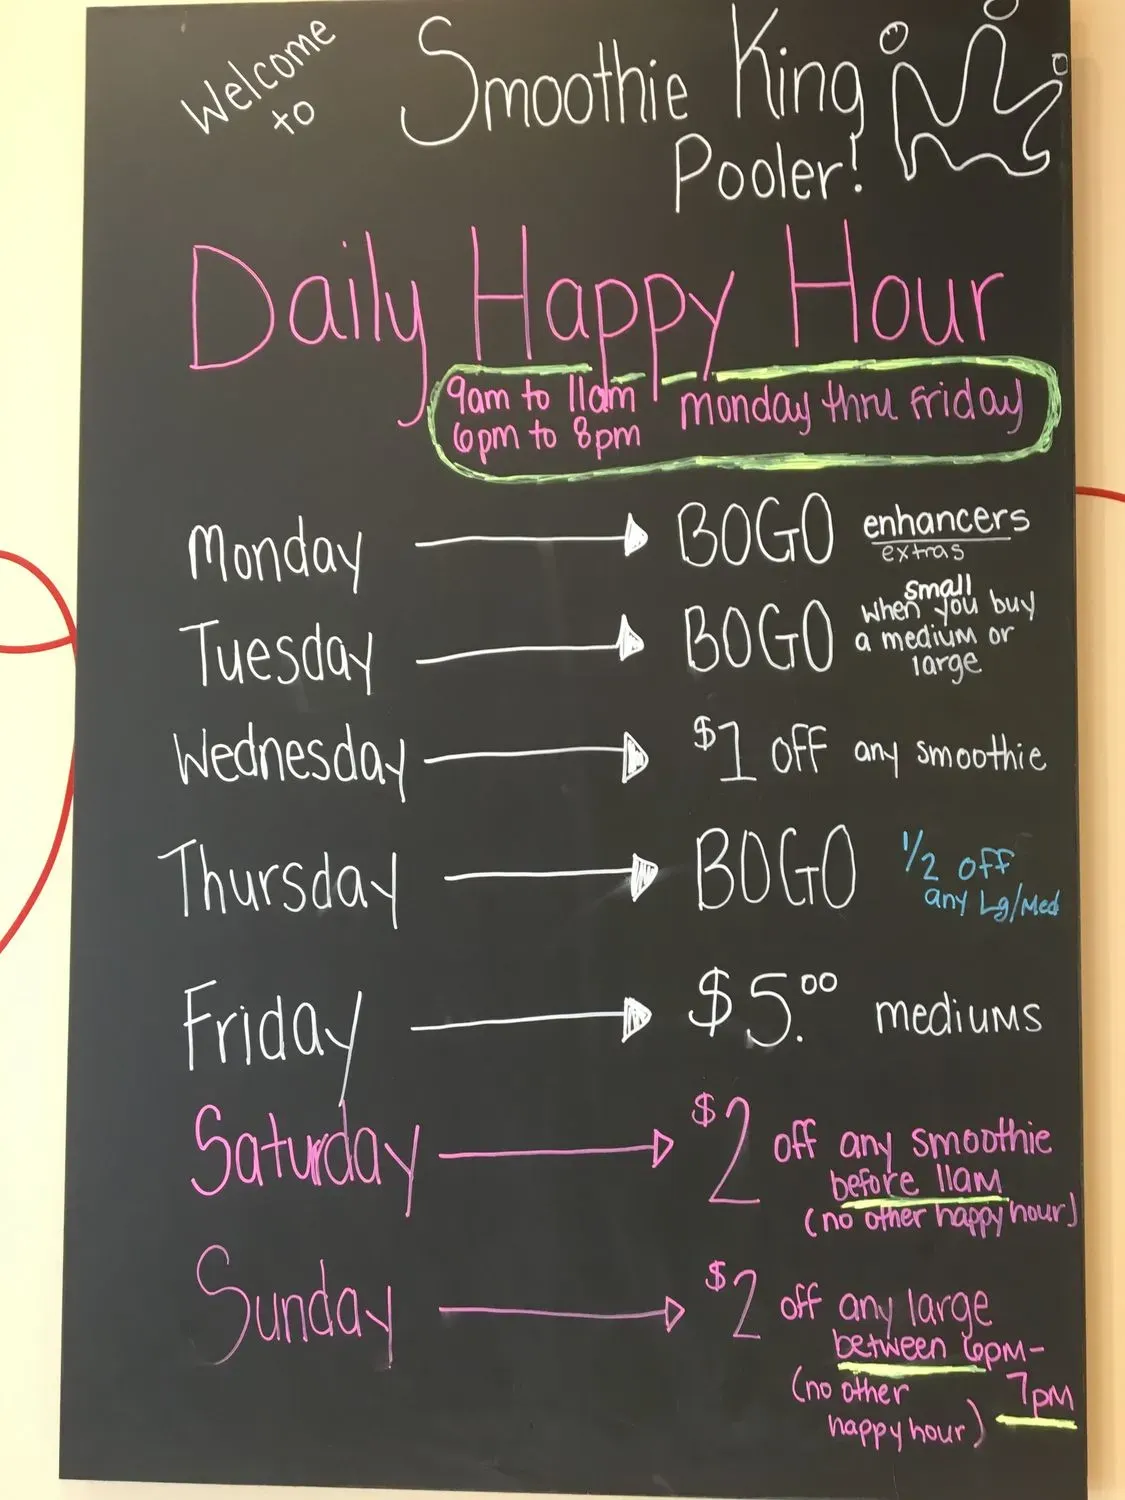 Welcome
to
Smoothie King
Pooler!
Daily Happy Hour
9am to 11am monday thru Friday
6pm to 8pm
Monday BOGO enhancers
extras
Tuesday BOGO small
when you buy
a medium or
large
Wednesday $1 off any smoothie
Thursday BOGO 1/2 off
any Lg/Med
Friday $5.00 mediums
Saturday $2 off any smoothie
before 11am
(no other happy hour)
Sunday $2 off any large
between 6pm-
7pm
(no other
happy hour)